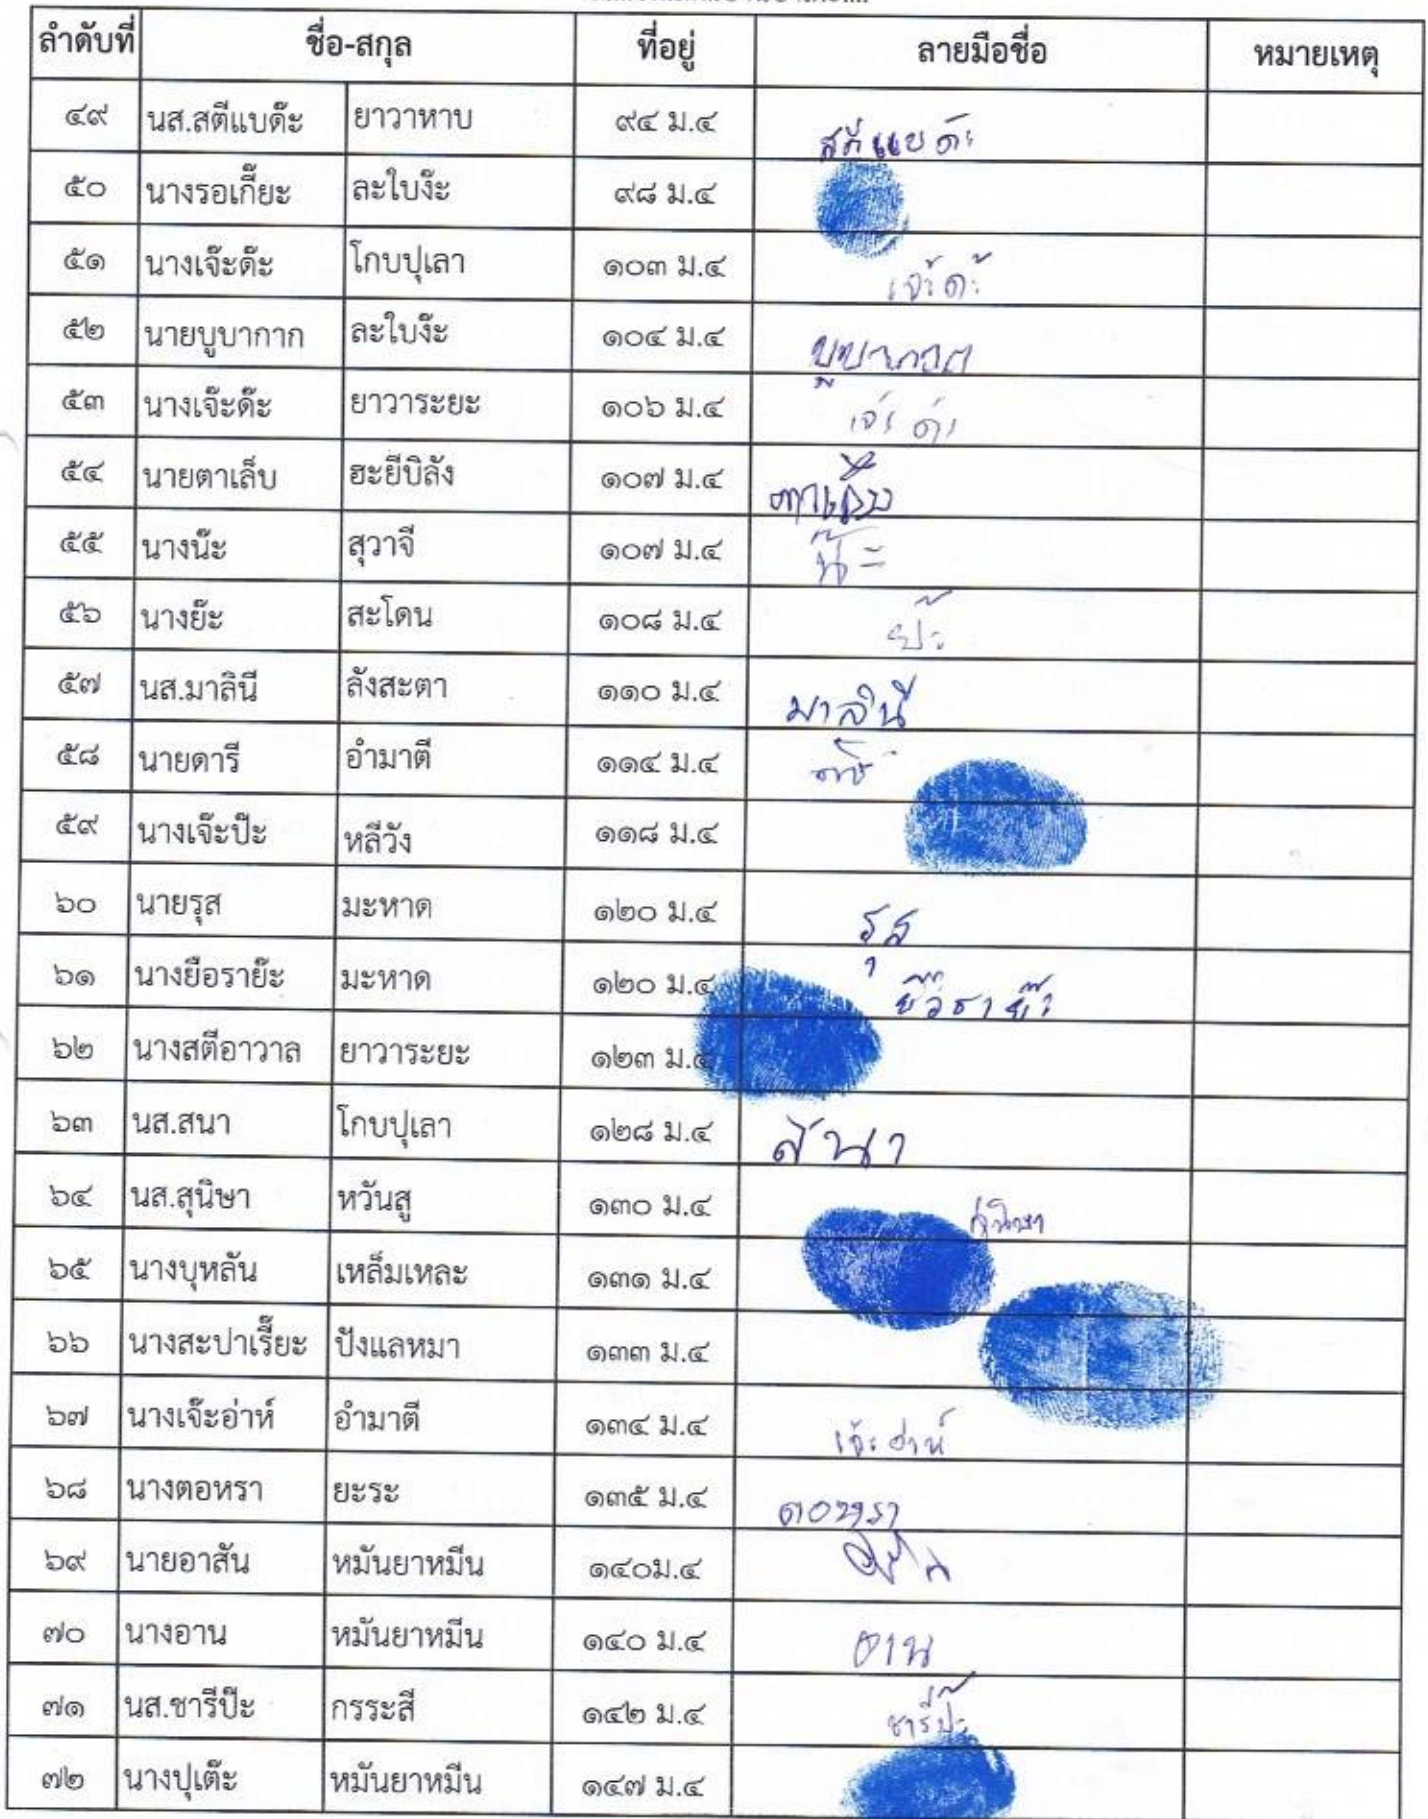 ลำดับที่ ชื่อ-สกุล ที่อยู่ ลายมือชื่อ หมายเหตุ
๔๙ นส.สตีแบด๊ะ ยาวาหาบ ๙๔ ม.๔ สตีแบด๊ะ
๕๐ นางรอเกี๊ยะ ละใบง๊ะ ๙๘ ม.๔
๕๑ นางเจ๊ะด๊ะ โกบปุเลา ๑๐๓ ม.๔ เจ๊ะด๊ะ
๕๒ นายบูบากาก ละใบง๊ะ ๑๐๔ ม.๔
๕๓ นางเจ๊ะด๊ะ ยาวาระยะ ๑๐๖ ม.๔
๕๔ นายตาเล็บ ฮะยีบิลัง ๑๐๗ ม.๔ ตาเล็บ
๕๕ นางน๊ะ สุวาจี ๑๐๗ ม.๔ น๊ะ
๕๖ นางย๊ะ สะโดน ๑๐๘ ม.๔ ย๊ะ
๕๗ นส.มาลินี ลังสะตา ๑๑๐ ม.๔ มาลินี
๕๘ นายดารี อำมาตี ๑๑๔ ม.๔
๕๙ นางเจ๊ะป๊ะ หลีวัง ๑๑๘ ม.๔
๖๐ นายรุส มะหาด ๑๒๐ ม.๔ รุส
๖๑ นางยือราย๊ะ มะหาด ๑๒๐ ม.๔
๖๒ นางสตีอาวาล ยาวาระยะ ๑๒๓ ม.๔
๖๓ นส.สนา โกบปุเลา ๑๒๘ ม.๔ สนา
๖๔ นส.สุนิษา หวันสู ๑๓๐ ม.๔ สุนิษา
๖๕ นางบุหลัน เหล็มเหละ ๑๓๑ ม.๔
๖๖ นางสะปาเรี๊ยะ ปังแลหมา ๑๓๓ ม.๔
๖๗ นางเจ๊ะอ่าห์ อำมาตี ๑๓๔ ม.๔ เจ๊ะอ่าห์
๖๘ นางตอหรา ยะระ ๑๓๕ ม.๔ ตอหรา
๖๙ นายอาสัน หมันยาหมีน ๑๔๐ม.๔
๗๐ นางอาน หมันยาหมีน ๑๔๐ ม.๔ อาน
๗๑ นส.ชารีป๊ะ กรระสี ๑๔๒ ม.๔ ชารีป๊ะ
๗๒ นางปุเต๊ะ หมันยาหมีน ๑๔๗ ม.๔